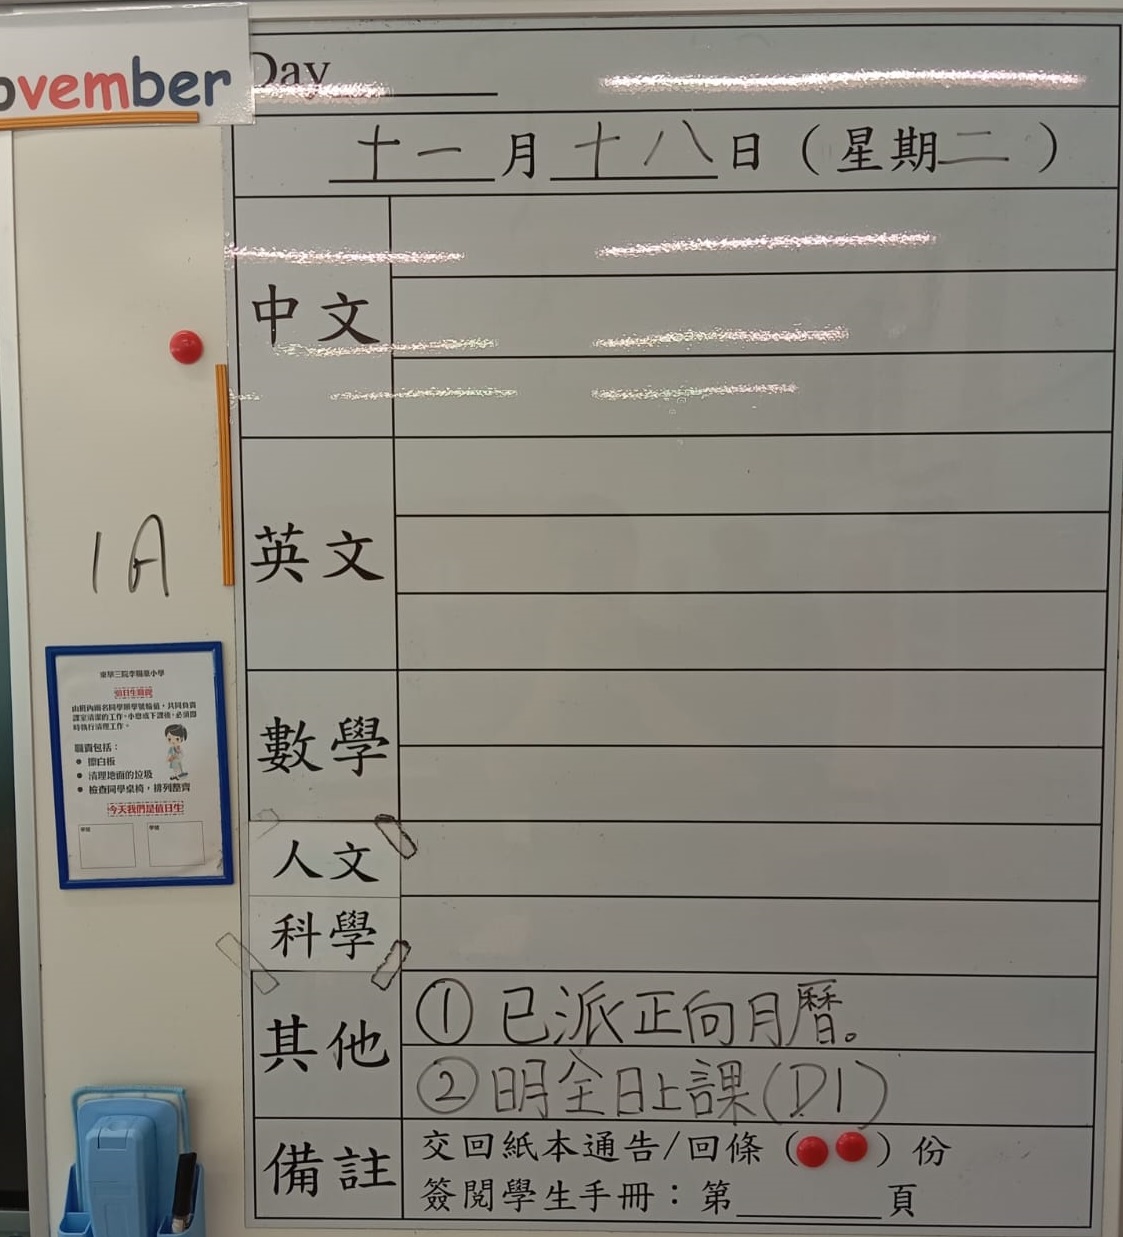 ovember
Day
十一月十八日（星期二）
中文
英文
1A
數學
人文
科學
其他
①已派正向月曆。
②明全日上課(D1)
備註
交回紙本通告/回條（ ）份
簽閱學生手冊：第 頁
值日生職說
由班內兩名同學順學號輪值，共同負責
課室清潔的工作。小息或下課後，必須即
時執行清理工作。
職責包括：
• 擦白板
• 清理地面的垃圾
• 檢查同學桌椅，排列整齊
今天我們是值日生
學號 學號